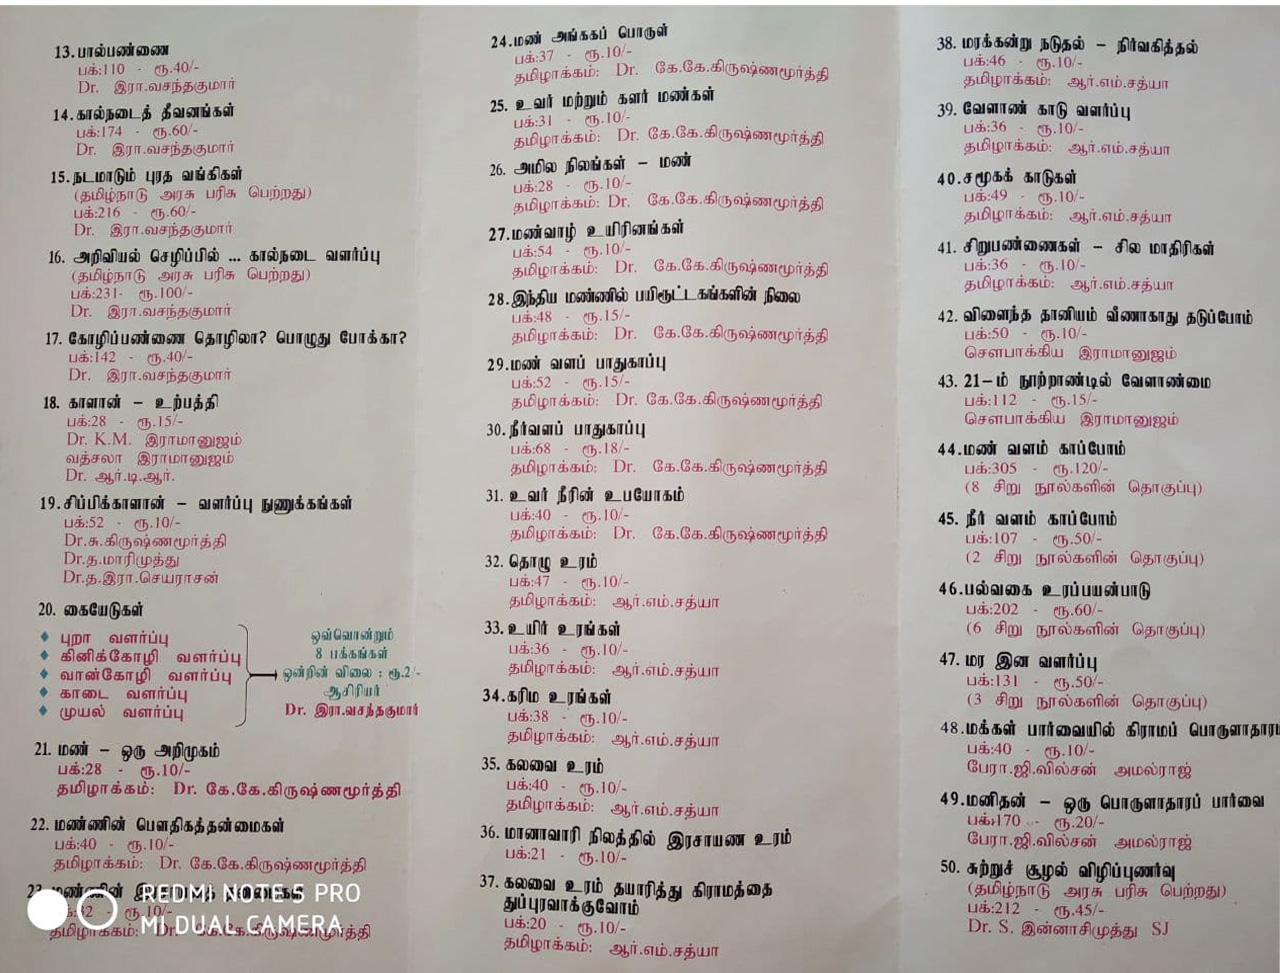 13. பால்பண்ணை
பக்:110 - ரூ.40/-
Dr. இரா.வசந்தகுமார்
14. கால்நடைத் தீவனங்கள்
பக்:174 - ரூ.60/-
Dr. இரா.வசந்தகுமார்
15. நடமாடும் புரத வங்கிகள்
(தமிழ்நாடு அரசு பரிசு பெற்றது)
பக்:216 - ரூ.60/-
Dr. இரா.வசந்தகுமார்
16. அறிவியல் செழிப்பில் ... கால்நடை வளர்ப்பு
(தமிழ்நாடு அரசு பரிசு பெற்றது)
பக்:231- ரூ.100/-
Dr. இரா.வசந்தகுமார்
17. கோழிப்பண்ணை தொழிலா? பொழுது போக்கா?
பக்:142 - ரூ.40/-
Dr. இரா.வசந்தகுமார்
18. காளான் – உற்பத்தி
பக்:28 - ரூ.15/-
Dr. K.M. இராமானுஜம்
வத்சலா இராமானுஜம்
Dr. ஆர்.டி.ஆர்.
19. சிப்பிக்காளான் – வளர்ப்பு நுணுக்கங்கள்
பக்:52 - ரூ.10/-
Dr.சு.கிருஷ்ணமூர்த்தி
Dr.த.மாரிமுத்து
Dr.த.இரா.செயராசன்
20. கையேடுகள்
♦ புறா வளர்ப்பு
♦ கினிக்கோழி வளர்ப்பு
♦ வான்கோழி வளர்ப்பு
♦ காடை வளர்ப்பு
♦ முயல் வளர்ப்பு
ஒவ்வொன்றும்
8 பக்கங்கள்
ஒன்றின் விலை : ரூ.2/-
ஆசிரியர்
Dr. இரா.வசந்தகுமார்
21. மண் – ஒரு அறிமுகம்
பக்:28 - ரூ.10/-
தமிழாக்கம்: Dr. கே.கே.கிருஷ்ணமூர்த்தி
22. மண்ணின் பௌதிகத்தன்மைகள்
பக்:40 - ரூ.10/-
தமிழாக்கம்: Dr. கே.கே.கிருஷ்ணமூர்த்தி
23. மண்ணின்
ரூ.10/-
தமிழாக்கம்: Dr. கே.கே.கிருஷ்ணமூர்த்தி
REDMI NOTE 5 PRO
MI DUAL CAMERA
24. மண் அங்ககப் பொருள்
பக்:37 - ரூ.10/-
தமிழாக்கம்: Dr. கே.கே.கிருஷ்ணமூர்த்தி
25. உவர் மற்றும் களர் மண்கள்
பக்:31 - ரூ.10/-
தமிழாக்கம்: Dr. கே.கே.கிருஷ்ணமூர்த்தி
26. அமில நிலங்கள் – மண்
பக்:28 - ரூ.10/-
தமிழாக்கம்: Dr. கே.கே.கிருஷ்ணமூர்த்தி
27. மண்வாழ் உயிரினங்கள்
பக்:54 - ரூ.10/-
தமிழாக்கம்: Dr. கே.கே.கிருஷ்ணமூர்த்தி
28. இந்திய மண்ணில் பயிரூட்டகங்களின் நிலை
பக்:48 - ரூ.15/-
தமிழாக்கம்: Dr. கே.கே.கிருஷ்ணமூர்த்தி
29. மண் வளப் பாதுகாப்பு
பக்:52 - ரூ.15/-
தமிழாக்கம்: Dr. கே.கே.கிருஷ்ணமூர்த்தி
30. நீர்வளப் பாதுகாப்பு
பக்:68 - ரூ.18/-
தமிழாக்கம்: Dr. கே.கே.கிருஷ்ணமூர்த்தி
31. உவர் நீரின் உபயோகம்
பக்:40 - ரூ.10/-
தமிழாக்கம்: Dr. கே.கே.கிருஷ்ணமூர்த்தி
32. தொழு உரம்
பக்:47 - ரூ.10/-
தமிழாக்கம்: ஆர்.எம்.சத்யா
33. உயிர் உரங்கள்
பக்:36 - ரூ.10/-
தமிழாக்கம்: ஆர்.எம்.சத்யா
34. கரிம உரங்கள்
பக்:38 - ரூ.10/-
தமிழாக்கம்: ஆர்.எம்.சத்யா
35. கலவை உரம்
பக்:40 - ரூ.10/-
தமிழாக்கம்: ஆர்.எம்.சத்யா
36. மானாவாரி நிலத்தில் இரசாயண உரம்
பக்:21 - ரூ.10/-
37. கலவை உரம் தயாரித்து கிராமத்தை
துப்புரவாக்குவோம்
பக்:20 - ரூ.10/-
தமிழாக்கம்: ஆர்.எம்.சத்யா
38. மரக்கன்று நடுதல் – நிர்வகித்தல்
பக்:46 - ரூ.10/-
தமிழாக்கம்: ஆர்.எம்.சத்யா
39. வேளாண் காடு வளர்ப்பு
பக்:36 - ரூ.10/-
தமிழாக்கம்: ஆர்.எம்.சத்யா
40. சமூகக் காடுகள்
பக்:49 - ரூ.10/-
தமிழாக்கம்: ஆர்.எம்.சத்யா
41. சிறுபண்ணைகள் – சில மாதிரிகள்
பக்:36 - ரூ.10/-
தமிழாக்கம்: ஆர்.எம்.சத்யா
42. விளைந்த தானியம் வீணாகாது தடுப்போம்
பக்:50 - ரூ.10/-
சௌபாக்கிய இராமானுஜம்
43. 21–ம் நூற்றாண்டில் வேளாண்மை
பக்:112 - ரூ.15/-
சௌபாக்கிய இராமானுஜம்
44. மண் வளம் காப்போம்
பக்:305 - ரூ.120/-
(8 சிறு நூல்களின் தொகுப்பு)
45. நீர் வளம் காப்போம்
பக்:107 - ரூ.50/-
(2 சிறு நூல்களின் தொகுப்பு)
46. பல்வகை உரப்பயன்பாடு
பக்:202 - ரூ.60/-
(6 சிறு நூல்களின் தொகுப்பு)
47. மர இன வளர்ப்பு
பக்:131 - ரூ.50/-
(3 சிறு நூல்களின் தொகுப்பு)
48. மக்கள் பார்வையில் கிராமப் பொருளாதாரம
பக்:40 - ரூ.10/-
பேரா.ஜி.வில்சன் அமல்ராஜ்
49. மனிதன் – ஒரு பொருளாதாரப் பார்வை
பக்:170 - ரூ.20/-
பேரா.ஜி.வில்சன் அமல்ராஜ்
50. சுற்றுச் சூழல் விழிப்புணர்வு
(தமிழ்நாடு அரசு பரிசு பெற்றது)
பக்:212 - ரூ.45/-
Dr. S. இன்னாசிமுத்து SJ